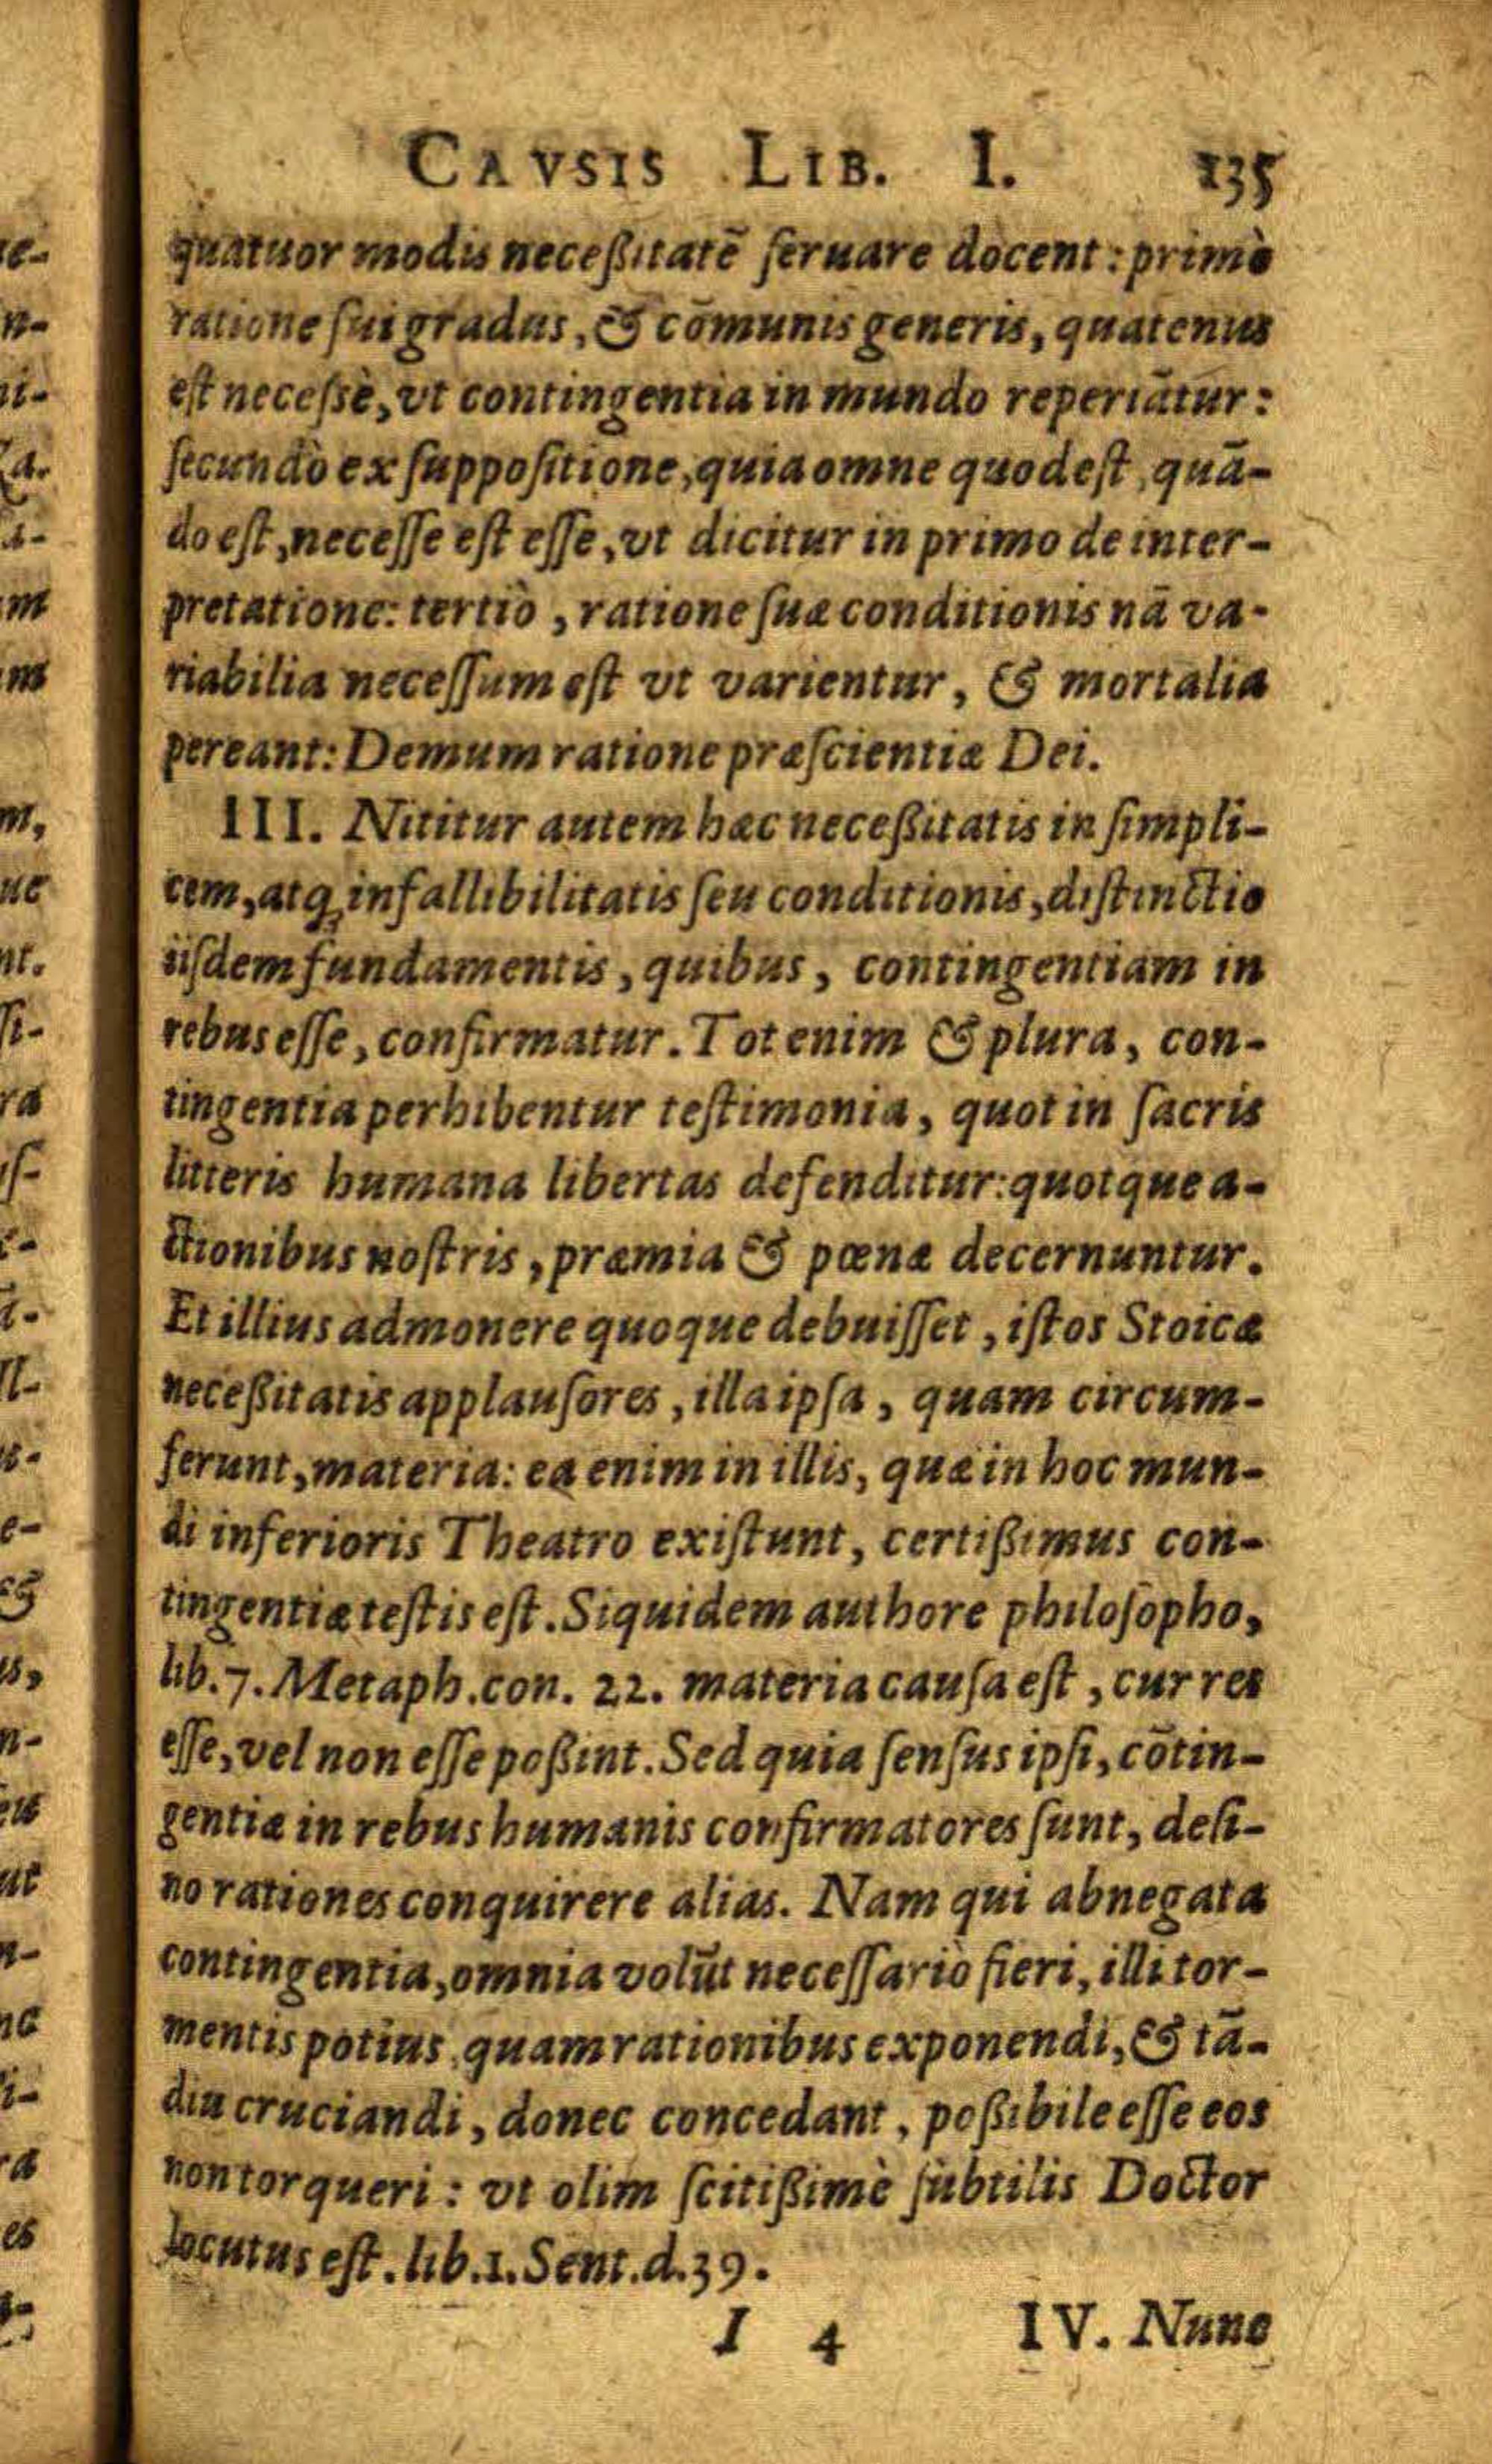 CAVSIS LIB. I. 135
quatuor modis neceßitatē ſeruare docent: primò
ratione ſui gradus, & cōmunis generis, quatenus
eſt neceſſè, vt contingentia in mundo reperiātur:
ſecundò ex ſuppoſitione, quia omne quod eſt, quā-
do eſt, neceſſe eſt eſſe, vt dicitur in primo de inter-
pretatione: tertiò, ratione ſuæ conditionis nā va-
riabilia neceſſum eſt vt varientur, & mortalia
pereant: Demum ratione præſcientiæ Dei.
III. Nititur autem hæc neceßitatis in ſimpli-
cem, atq; infallibilitatis ſeu conditionis, diſtinctio
iiſdem fundamentis, quibus, contingentiam in
rebus eſſe, confirmatur. Tot enim & plura, con-
tingentia perhibentur teſtimonia, quot in ſacris
litteris humana libertas defenditur: quotque a-
ctionibus noſtris, præmia & pœnæ decernuntur.
Et illius admonere quoque debuiſſet, iſtos Stoicæ
neceßitatis applauſores, illa ipſa, quam circum-
ferunt, materia: ea enim in illis, quæ in hoc mun-
di inferioris Theatro exiſtunt, certißimus con-
tingentiæ teſtis eſt. Siquidem authore philoſopho,
lib. 7. Metaph. con. 22. materia cauſa eſt, cur res
eſſe, vel non eſſe poßint. Sed quia ſenſus ipſi, cōtin-
gentiæ in rebus humanis confirmatores ſunt, deſi-
no rationes conquirere alias. Nam qui abnegata
contingentia, omnia volūt neceſſariò fieri, illi tor-
mentis potius quam rationibus exponendi, & tā-
diu cruciandi, donec concedant, poßibile eſſe eos
non torqueri: vt olim ſcitißimè ſubtilis Doctor
locutus eſt. lib. 1. Sent. d. 39.
I 4 IV. Nunc